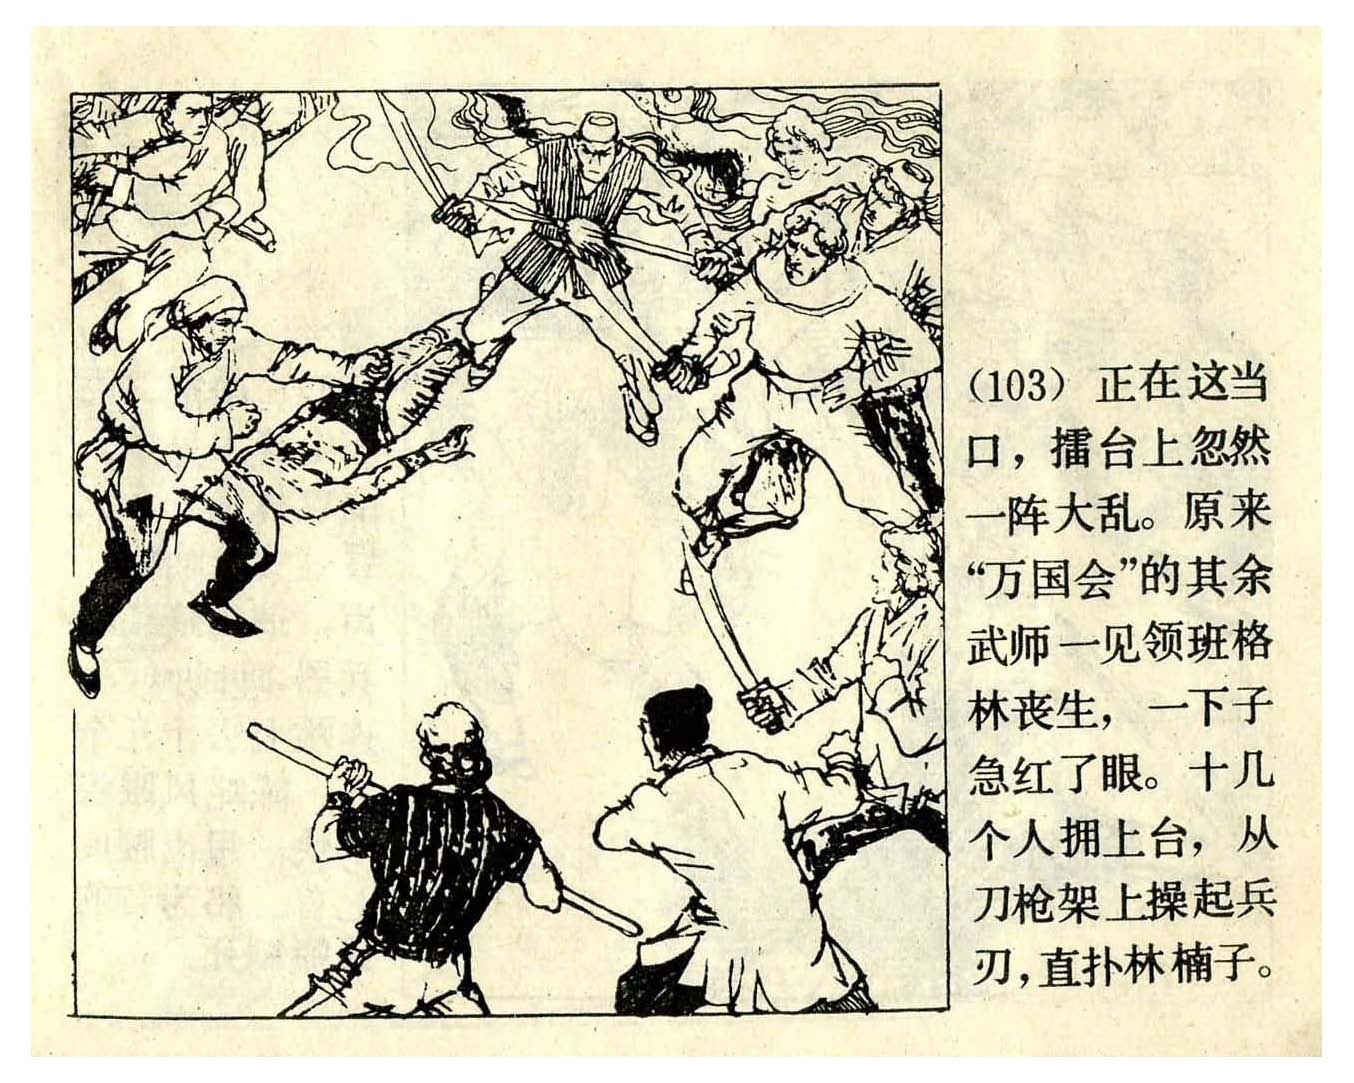 （103）正在这当
口，擂台上忽然
一阵大乱。原来
“万国会”的其余
武师一见领班格
林丧生，一下子
急红了眼。十几
个人拥上台，从
刀枪架上操起兵
刃，直扑林楠子。